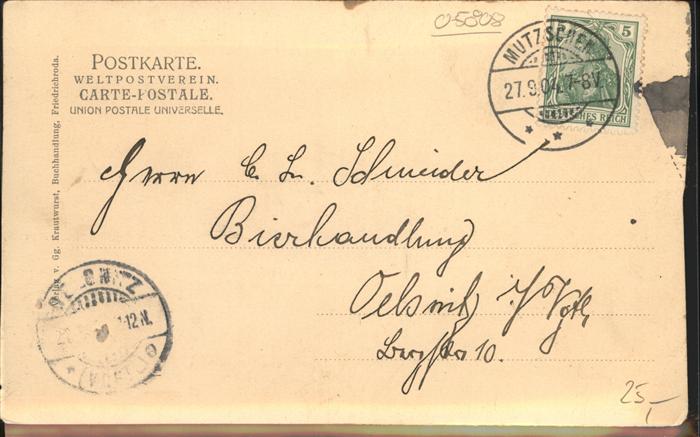 05808
POSTKARTE.
WELTPOSTVEREIN.
CARTE-POSTALE.
UNION POSTALE UNIVERSELLE.
v. Gg. Krautwurst, Buchhandlung, Friedrichroda.
MUTZSCHEN
27.9.04. 7-8V.
5
REICH
Herrn C. Schneider
Bierhandlung
Oelsnitz i/ Vgtl.
Bergstr 10.
OELSNITZ
12N.
25,-